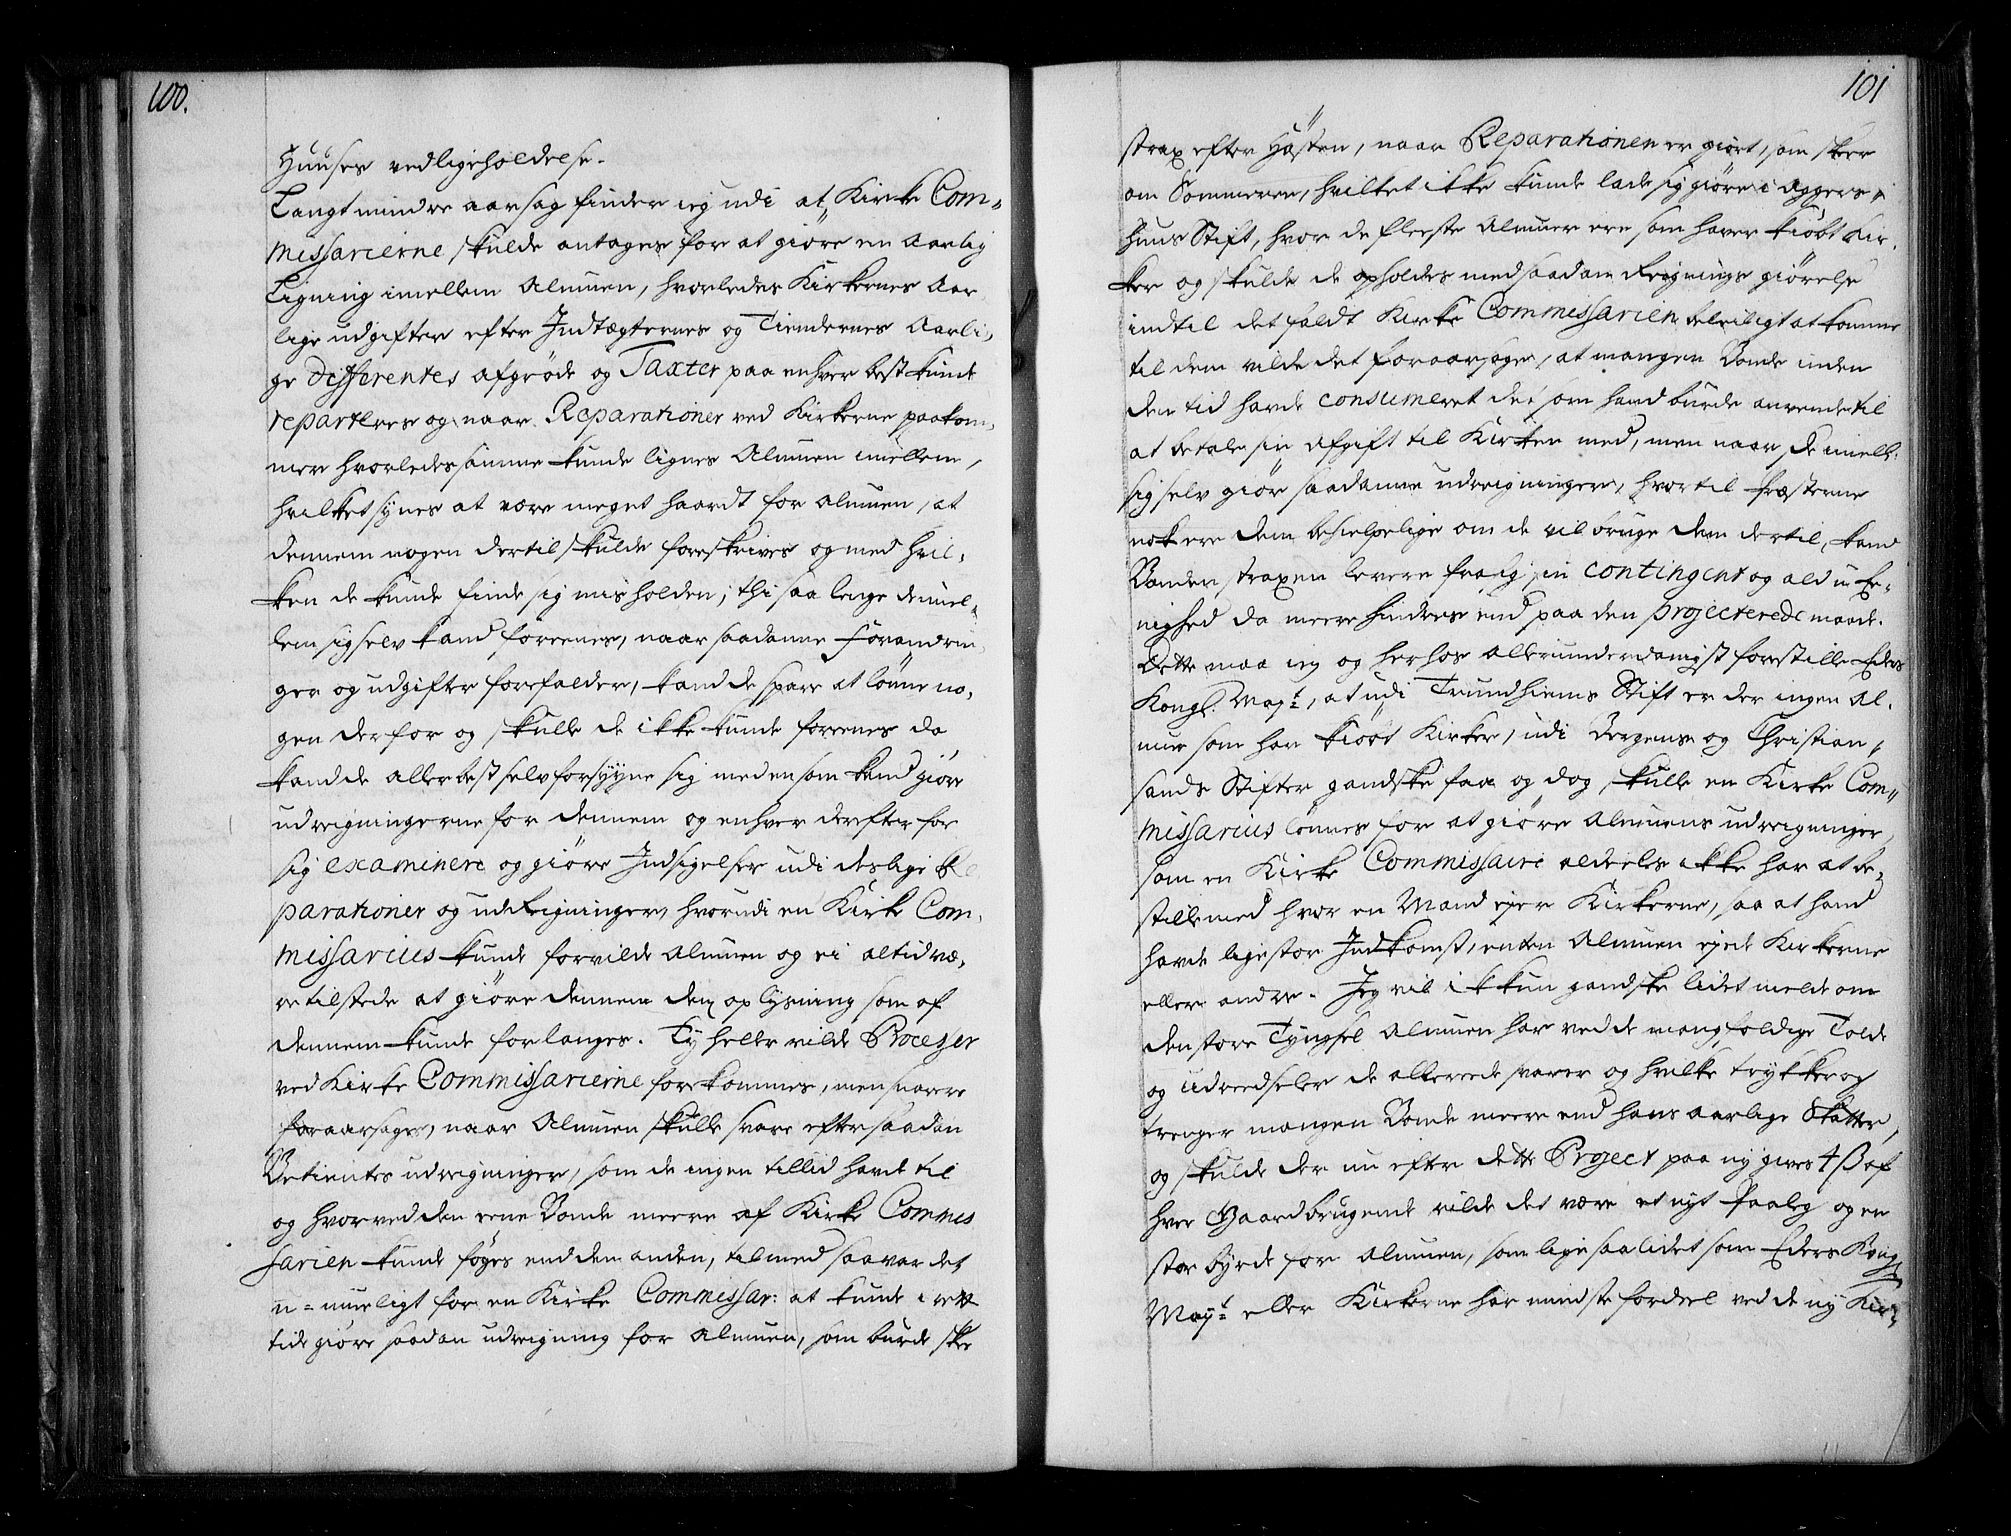 100.
Huuses vedligeholdelse.
Langt mindre aarsag finder ieg udi at Kirke Com-
missarierne skulde antages for at giøre en Aarlig
Ligning imellem Almuen, hvorledes Kirkernes Aar
lige udgifter efter Indtægternes og Tiendernes Aarli-
ge differentes afgrøde og Taxter paa enhver best kunde
reparteres og naar Reparationer ved Kirkerne paakom-
mer hvorledes samme kunde lignes Almuen imellem,
hvilket synes at være meget haardt for Almuen, at
dennem nogen dertil skulde foreskrives og med hvil-
ken de kunde finde sig misholden; thi saa lenge de imel-
lem sig selv kand foreenes, naar saadanne forandrin
ger og udgifter forefalder, kand de spare at lønne no-
gen derfor og skulle de ikke kunde foreenes da
kand de allerbest selv forsyyne sig med en som kand giøre
udreigningerne for dennem og enhver derefter for
sig examinere og giøre Indsigelser udi deslige Re
parationer og udReigninger, hvorudi en Kirke Com-
missarius kunde forvilde Almuen og ei altid væ-
re tilstede at giøre dennem den oplysning som af
dennem kunde forlanges. Ey heller vilde Processer
ved Kirke Commissarierne forekommes, men snarere
foraarsages, naar Almuen skulle svare efter saadan
Betientes udreigninger, som de ingen tillid havde til
og hvorved den eene Bonde meere af Kirke Commis
sarien kunde føyes end den anden, tilmed saa var det
u-mueligt for en Kirke Commissar: at kunde i rette
tide giøre saadan udreigning for Almuen, som burde skee
101
strax efter Høsten, naar Reparationen er giort, som skeer
om Sommeren, hvilket ikke kunde lade sig giøre i Aggers-
huus Stift, hvor de fleeste Almuer ere som haver kiøbt Kir-
ker og skulde de opholdes med saadan Reignings giørelse
indtil det faldt Kirke Commissarien beleiligt at komme
til dem vilde det foraarsage, at mangen Bonde inden
den tid havde consumeret det som hand burde anvende til
at betale sin afgift til Kirken med, men naar de imell:
sig selv giør saadanne udreigninger, hvortil Præsterne
nok ere dem behielpelige om de vil bruge dem dertil, kand
Bonden straxen levere fra sig sin contingent og ald u-Ee-
nighed da meere hindres end paa den projecterede maade.
Dette maa ieg og herhos allerunderdanigst forestille Eders
Kongl: Mayt:, at udi Trundhiems Stift er der ingen Al-
mue som har kiøbt Kirker, udi Bergens og Christian-
sands Stifter gandske faa og dog skulle en Kirke Com-
missarius lønnes for at giøre Almuens udreigninger,
som en Kirke Commissaire aldeeles ikke har at be-
stille med hvor en Mand ejer Kirkerne, saa at hand
havde lige stor Indkomst, enten Almuen ejede Kirkerne
eller andre. Jeg vil ikkun gandske lidet melde om
den store Tyngsel Almuen har ved de mangfoldige Tolde
og udreedseler de allerede svarer og hvilke trykker og
trenger mangen Bonde meere end hans aarlige Skatter,
og skulde der nu efter dette Project paa ny gives 4 ß af
hver Gaardbrugende vilde det være et nyt Paaleg og en
stor byrde for Almuen, som lige saa lidet som Eders Kongl:
Mayt: eller Kirkerne har mindste fordeel ved de ny Kir-